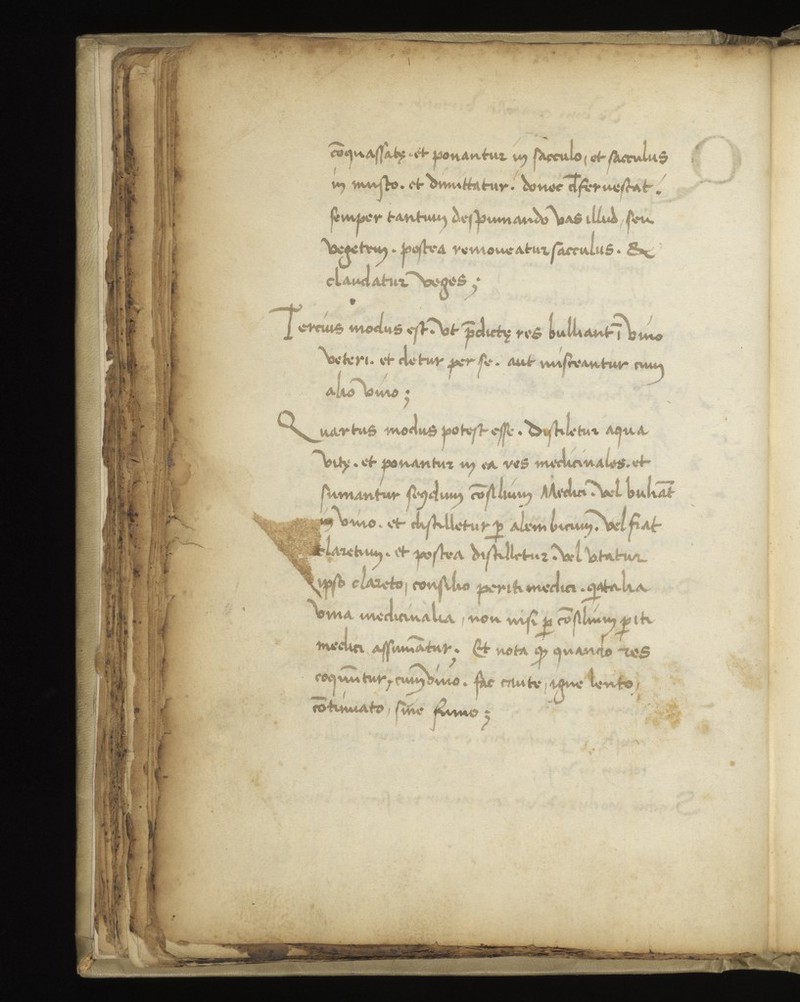 cōquassatę. et ponantur in sacculo, et sacculus
in musto. et dimittatur. donec dfervescat.
semper tantum despumando vas illud, seu
vegetem. postea removeatur sacculus. &
claudatur veges;
Tercius modus est. vt p̄dictę res bulliant ī vino
veteri. et detur per se. aut misceantur cum
alio vino;
Quartus modus potest esse. Distiletur aqua
vitę. et ponantur in ea res medicinales. et
sumantur secūdum cōsilium Medici. vel buliāt
in vino. et distilletur ꝑ alembicum. vel fiat
claretum. et postea distilletur. vel vtatur
ipso clareto, consilio periti medici. q̄ talia
vina medicinalia, non nisi ꝑ cōsilium ꝑiti
medici assumātur. Et nota ꝙ quando res
coquūtur, cum vino. fac caute, igne lento,
cōtinuato, sine fumo;